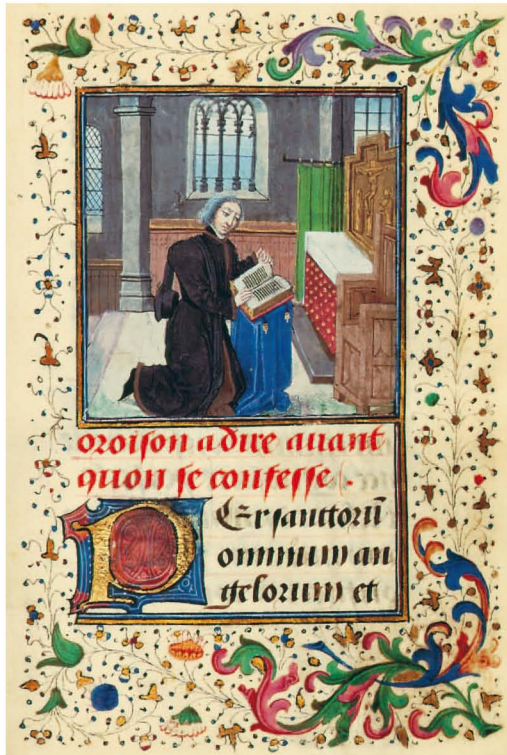 oroison a dire auant
quon se confesse.
Per sanctorū
omnium an
gelorum et